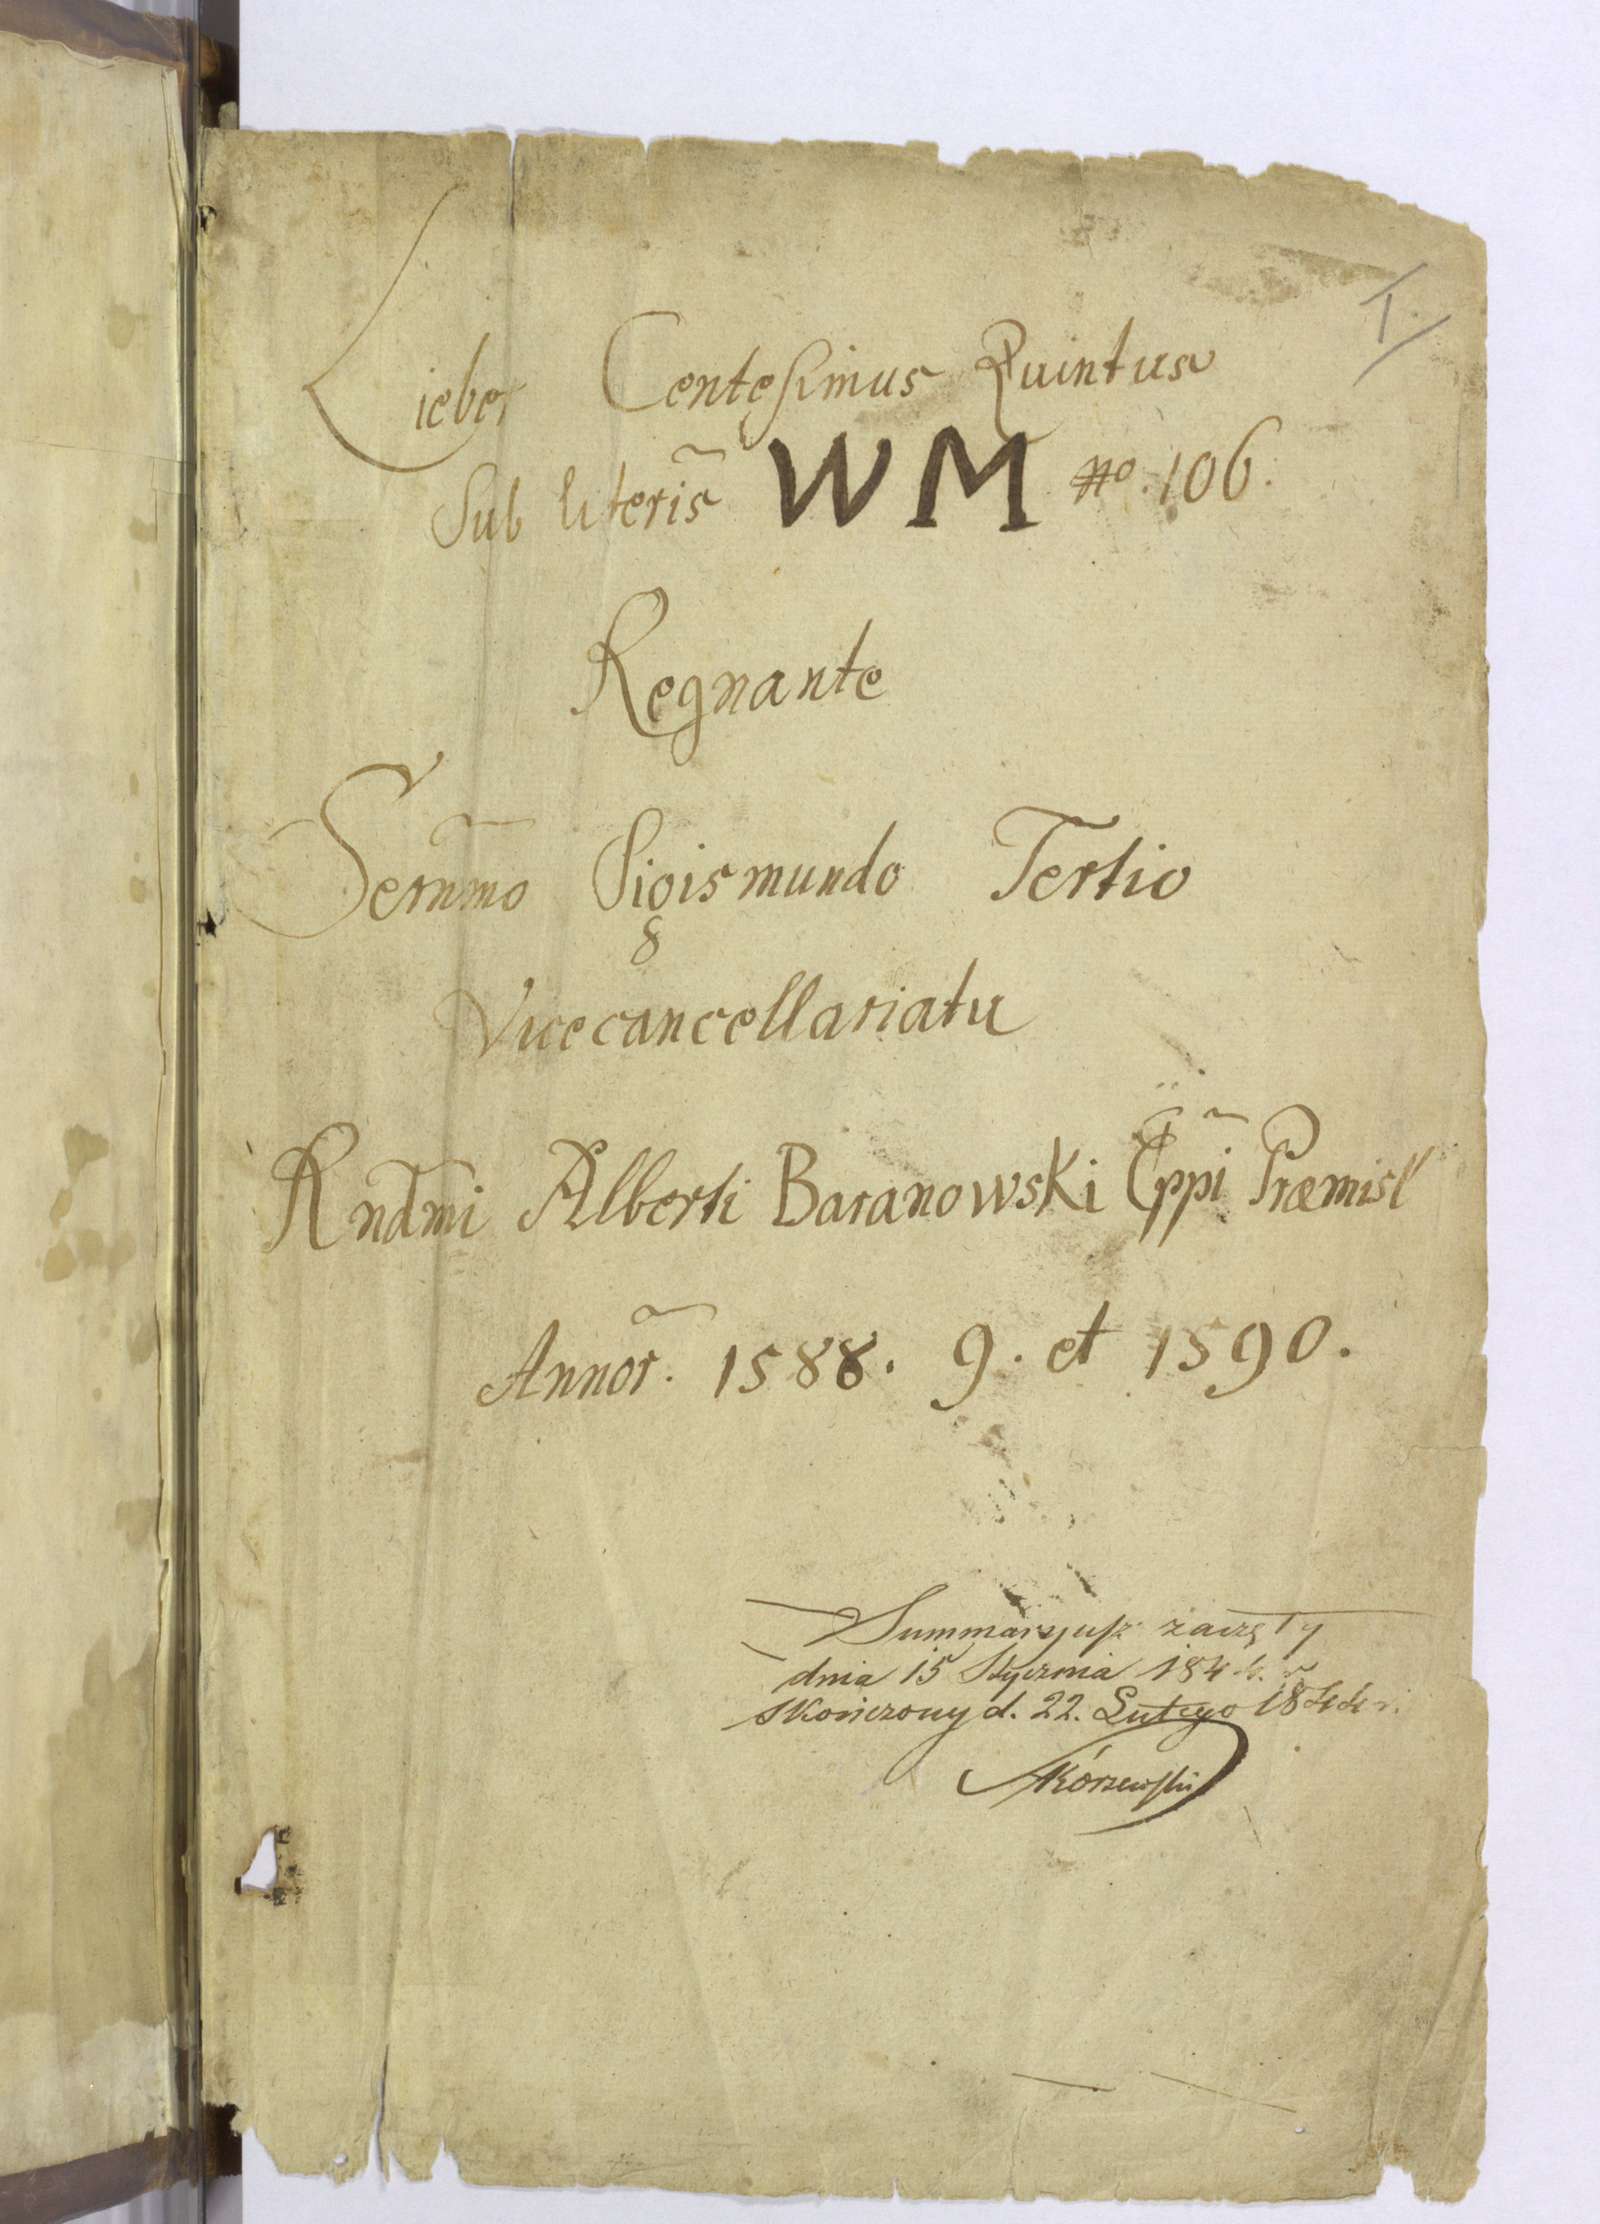 I.
Lieber Centesimus Quintus
Sub literis WM No. 106.
Regnante
Sernmo Sigismundo Tertio
Vicecancellariatu
Rndmi Alberti Baranowski Eppi Præmisl
Annor. 1588. 9. et 1590.
Summaryusz zaczęty
dnia 15 Stycznia 1844. r.
skończony d. 22. Lutego 1844 r.